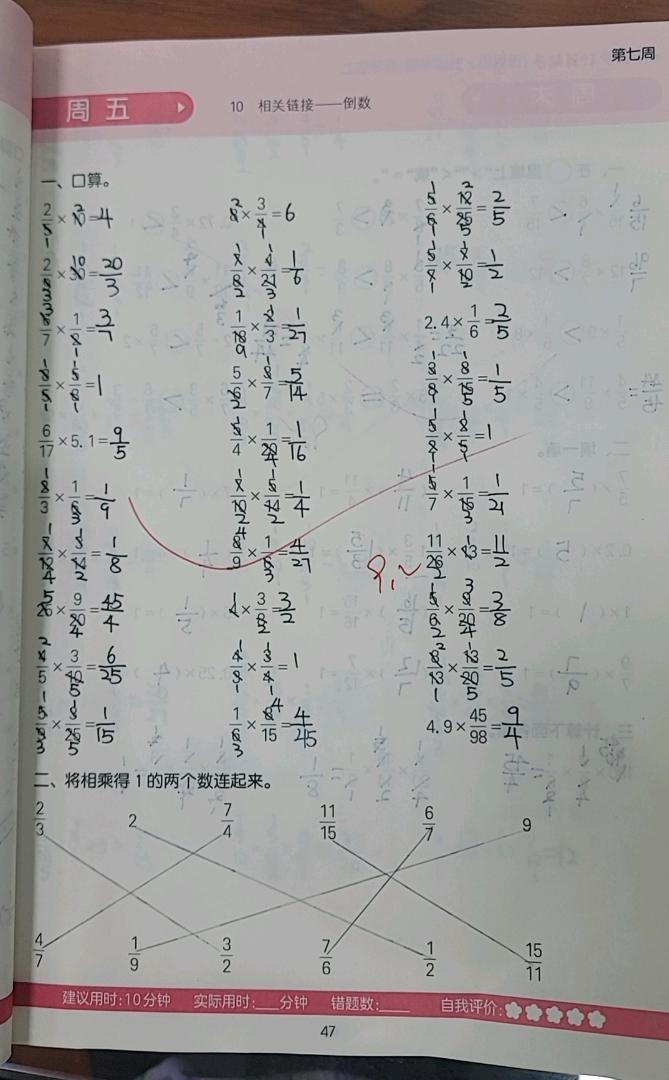 第七周
周五
10 相关链接——倒数
一、口算。
2/5×10=4 8×3/4=6 5/6×12/25=2/5
2/9×30=20/3 1/8×4/21=1/6 5/8×1/10=1/2
6/7×1/8=3/7 1/18×2/3=1/27 2.4×1/6=2/5
8/5×5/8=1 5/6×6/7=5/14 3/9×8/15=1/5
6/17×5.1=9/5 5/4×1/20=1/16 5/8×8/5=1
1/3×1/6=1/9 7/10×5/14=1/4 5/7×1/15=1/21
7/12×3/14=1/8 8/9×1/6=4/27 11/26×13=11/2
25×9/20=45/4 4×3/8=3/2 5/6×9/20=3/8
4/5×3/10=6/25 4/3×3/4=1 8/13×13/20=2/5
5/9×3/25=1/15 1/6×8/15=4/45 4.9×45/98=9/4
二、将相乘得1的两个数连起来。
2/3 2 7/4 11/15 6/7 9
4/7 1/9 3/2 7/6 1/2 15/11
建议用时:10分钟 实际用时:___分钟 错题数:____ 自我评价:
47